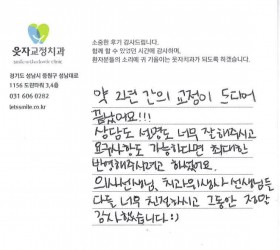 웃자교정치과
smile orthodontic clinic
경기도 성남시 중원구 성남대로
1126 도원파워 3,4층
031 606 0282
jetsmile.co.kr
소중한 후기 감사드립니다.
함께 할 수 있었던 시간에 감사하며,
환자분들의 소리에 귀 기울이는 웃자치과가 되도록 하겠습니다.
약 2년 간의 교정이 드디어
끝났어요!!!
상담도 설명도 너무 잘해주시고
요구사항도 가능하다면 최대한
반영해주시려고 하셨어요.
의사선생님, 치과위생사 선생님들
다들 너무 친절하시고 그동안 정말
감사했습니다 :)